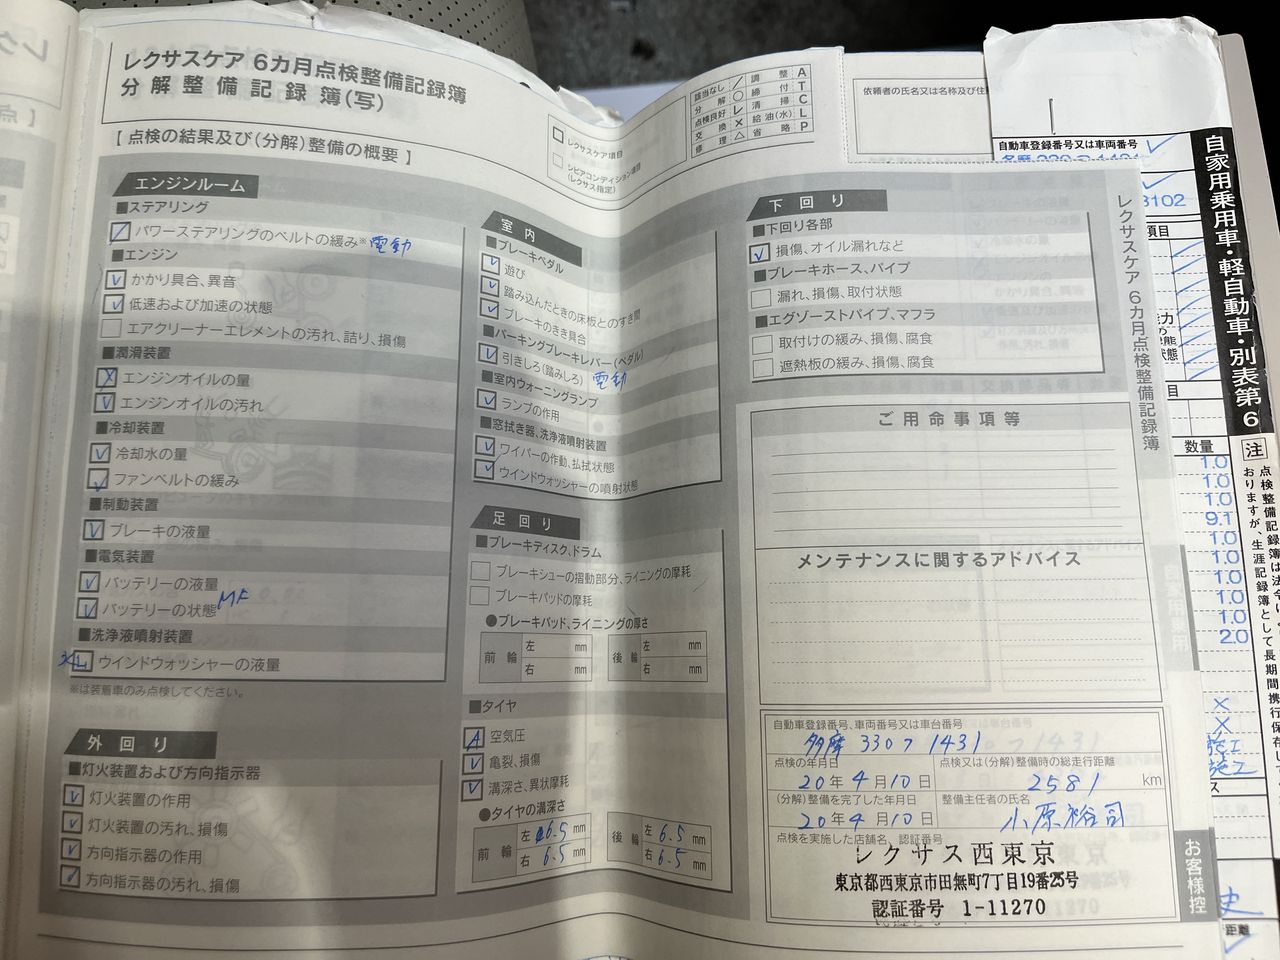 レクサスケア 6カ月点検整備記録簿
分解整備記録簿(写)
【 点検の結果及び(分解)整備の概要 】
レクサスケア項目
シビアコンディション項目
(レクサス指定)
該当なし ／ 調整 A
分解 ○ 締付 T
点検良好 レ 清掃 C
交換 × 給油(水) L
修理 △ 省略 P
依頼者の氏名又は名称及び住
自動車登録番号又は車両番号
エンジンルーム
■ステアリング
パワーステアリングのベルトの緩み※ 電動
■エンジン
かかり具合、異音
低速および加速の状態
エアクリーナーエレメントの汚れ、詰り、損傷
■潤滑装置
エンジンオイルの量
エンジンオイルの汚れ
■冷却装置
冷却水の量
ファンベルトの緩み
■制動装置
ブレーキの液量
■電気装置
バッテリーの液量
バッテリーの状態 MF
■洗浄液噴射装置
ウインドウォッシャーの液量
※は装着車のみ点検してください。
外回り
■灯火装置および方向指示器
灯火装置の作用
灯火装置の汚れ、損傷
方向指示器の作用
方向指示器の汚れ、損傷
室内
■ブレーキペダル
遊び
踏み込んだときの床板とのすき間
ブレーキのきき具合
■パーキングブレーキレバー(ペダル)
引きしろ(踏みしろ) 電動
■室内ウォーニングランプ
ランプの作用
■窓拭き器、洗浄液噴射装置
ワイパーの作動、払拭状態
ウインドウォッシャーの噴射状態
足回り
■ブレーキディスク、ドラム
ブレーキシューの摺動部分、ライニングの摩耗
ブレーキパッドの摩耗
●ブレーキパッド、ライニングの厚さ
前輪 左 mm 後輪 左 mm
右 mm 右 mm
■タイヤ
A 空気圧
亀裂、損傷
溝深さ、異状摩耗
●タイヤの溝深さ
前輪 左 6.5 mm 後輪 左 6.5 mm
右 6.5 mm 右 6.5 mm
下回り
■下回り各部
損傷、オイル漏れなど
■ブレーキホース、パイプ
漏れ、損傷、取付状態
■エグゾーストパイプ、マフラ
取付けの緩み、損傷、腐食
遮熱板の緩み、損傷、腐食
ご用命事項等
メンテナンスに関するアドバイス
自動車登録番号、車両番号又は車台番号
多摩 330 フ 1431
点検の年月日
20年4月10日
点検又は(分解)整備時の総走行距離
2581 km
(分解)整備を完了した年月日
20年4月10日
整備主任者の氏名
小原裕司
点検を実施した店舗名、認証番号
レクサス西東京
東京都西東京市田無町7丁目19番25号
認証番号 1-11270
レクサスケア 6カ月点検整備記録簿
お客様控
自家用乗用車・軽自動車・別表第6
3102
項目
数量
1.0
1.0
1.0
9.1
1.0
1.0
1.0
1.0
1.0
2.0
施工
施工
距離
注